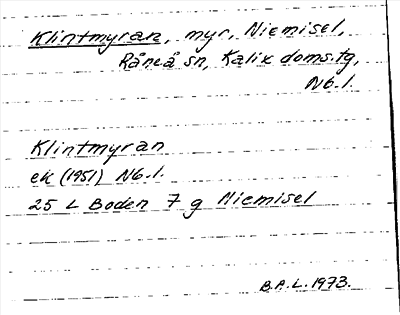 Klintmyran, myr, Niemisel,
Råneå sn, Kalix doms.tg,
Nb.l.
Klintmyran
ek (1951) Nb.l.
25 L Boden 7 g Niemisel
B.A.L. 1973.